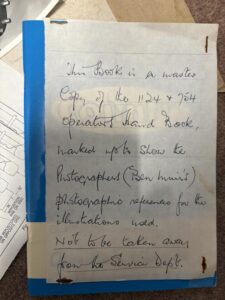 This Book is a master
Copy of the 1124 & 764
operators Hand Book,
marked up to show the
Photographers (Ben Muir's)
photographic references for the
illustrations used.
Not to be taken away
from the Service Dept.